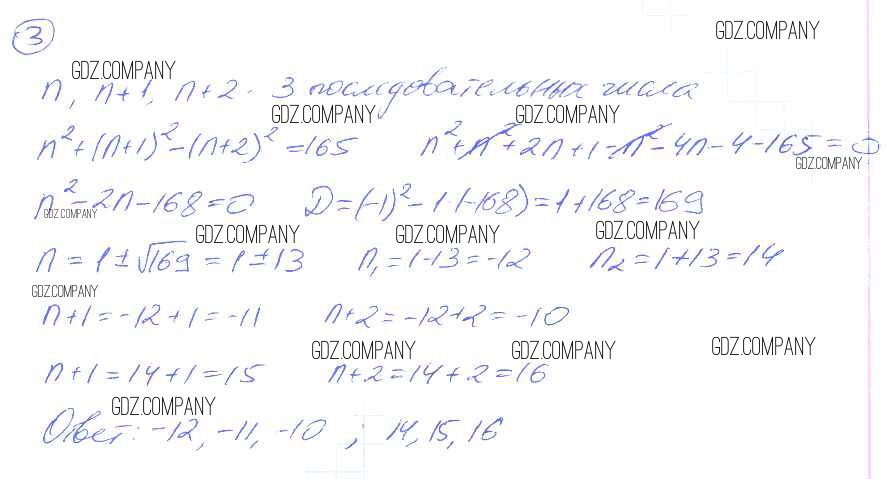 3
GDZ.COMPANY
GDZ.COMPANY
n, n+1, n+2 - 3 последовательных числа
GDZ.COMPANY GDZ.COMPANY
n²+(n+1)²-(n+2)²=165 n²+n²+2n+1-n²-4n-4-165=0
GDZ.COMPANY
n²-2n-168=0 D=(-1)²-1·(-168)=1+168=169
GDZ.COMPANY
GDZ.COMPANY GDZ.COMPANY GDZ.COMPANY
n=1±√169=1±13 n₁=1-13=-12 n₂=1+13=14
GDZ.COMPANY
n+1=-12+1=-11 n+2=-12+2=-10
GDZ.COMPANY GDZ.COMPANY GDZ.COMPANY
n+1=14+1=15 n+2=14+2=16
GDZ.COMPANY
Ответ: -12, -11, -10 ; 14, 15, 16